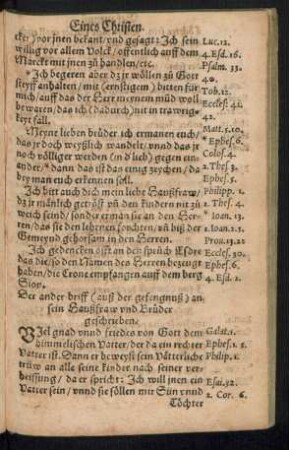 Eines Christen.
cker) vor jnen bekant/vnd gesagt: Ich sein Luc.12.
willig vor allem Volck/ offentlich auff dem 4.Esd.16.
Marckt mit jnen zu handlen/etc. Psalm. 33.
Ich begeren aber dz jr wöllen zu Gott 40.
steyff anhalten/ mit (ernstigem) bitten für Tob.12.
mich/auff das der Herr meynem mūd woll Ecclesi. 41.
bewaren/das ich (dadurch) nit in trawrig- 42.
keyt fall. Matt.5.10.
Meyne lieben brüder ich ermanen euch/ * Ephes.6.
das je doch weyßlich wandelt/ vnnd das je Colos.4.
noch völliger werden (in d lieb) gegen ein-
ander/ * dann das ist das einig zeychen/ da 2.Thes.3.
bey man euch erkennen soll. Ephes.5.
Ich bitt auch dich mein liebe Haußfraw/ Philipp.1.
dz je mänlich getröst vñ den kindern nit zu 2.Thes.4.
weich seind/ sonder erman sie an den Her- * Ioan. 13.
ren/das sie den lehrnen förchten/ vñ biß der 1.Ioan.2.3
Gemeynd gehorsam in den Herren. Prou.13.22
Ich gedencken offt an den spruch Esdre Eccles.30.
das die/so den Namen des Herren bezeugt Ephes.6.
haben/die Crone empfangen auff dem berg 4.Esd.2.
Sion.
Der ander briff (auß der gefengnuß) an
sein Haußfraw vnd Brüder
geschrieben.
VJel gnad vnnd friedes von Gott dem Galat.1.
himmelischen Vatter/ der da ein rechter Ephes.1.
Vatter ist. Dann er beweyst sein Vätterliche Philip.1.
trüw an alle seine kinder nach seiner ver-
heissung/ da er spricht: Ich will jnen ein Esai.52.
Vatter sein/ vnnd sie söllen mir Sün vnnd 2. Cor. 6.
Töchter